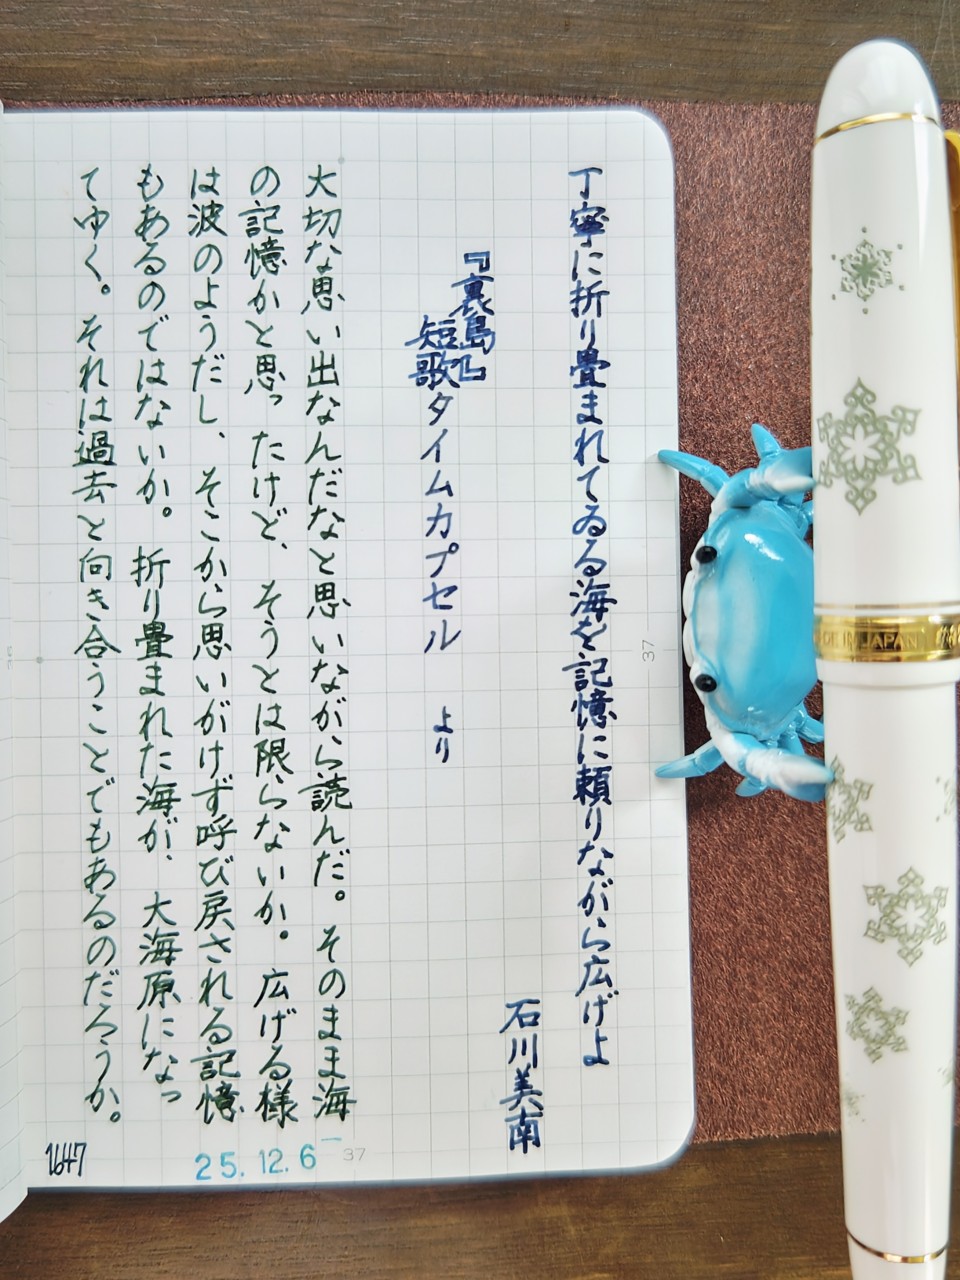 丁寧に折り畳まれてゐる海を記憶に頼りながら広げよ
石川美南
『裏島』
短歌タイムカプセル より
大切な思い出なんだなと思いながら読んだ。そのまま海
の記憶かと思ったけど、そうとは限らないか。広げる様
は波のようだし、そこから思いがけず呼び戻される記憶
もあるのではないか。折り畳まれた海が、大海原になっ
てゆく。それは過去と向き合うことでもあるのだろうか。
1647
25.12.6
37
37
JAPAN